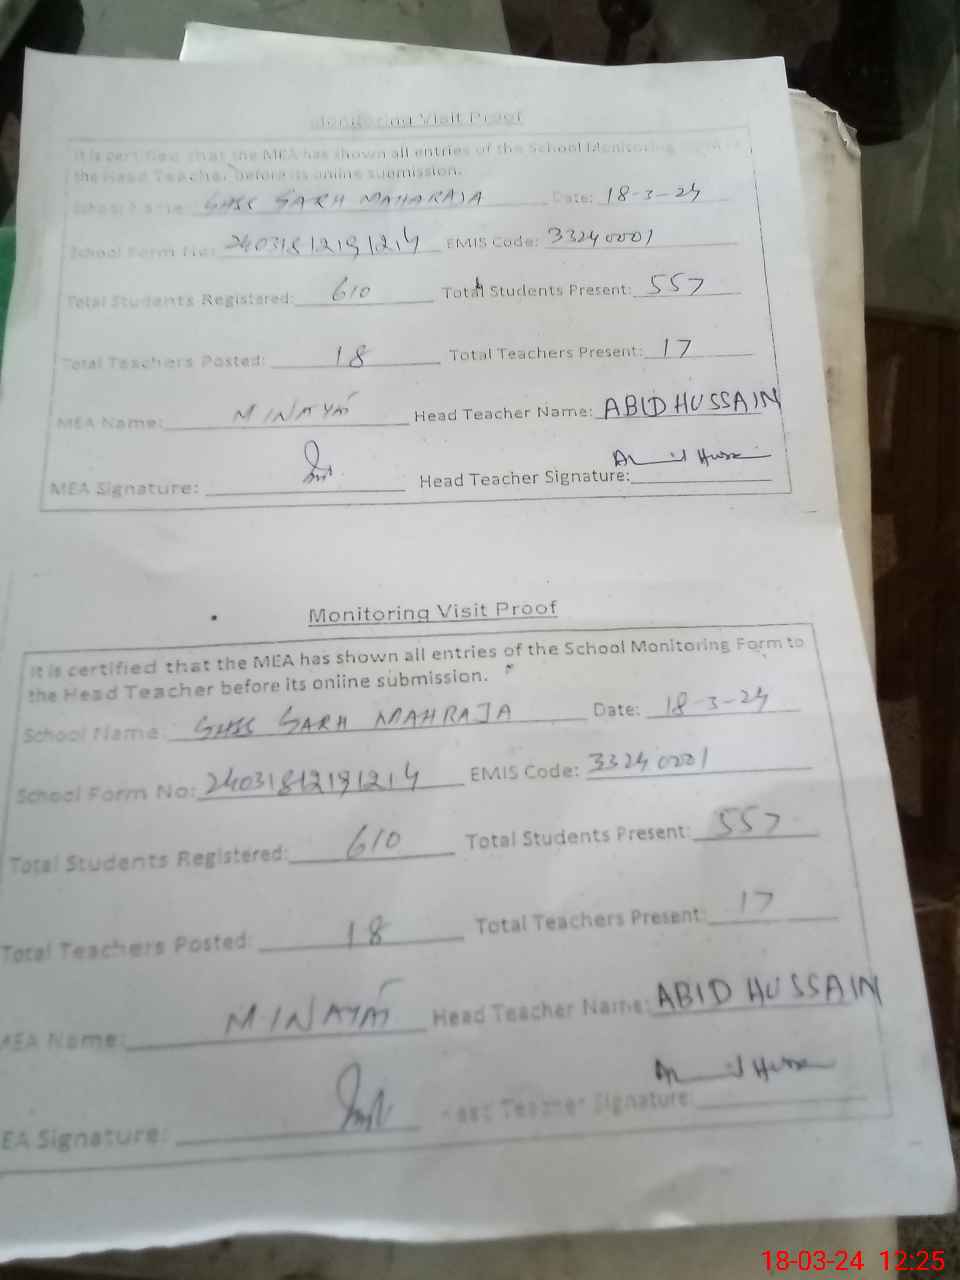 Monitoring Visit Proof
It is certified that the MEA has shown all entries of the School Monitoring
the Head Teacher before its online submission.
School Name: GHSS GARH MAHARAJA Date: 18-3-24
School Form No: 24031812191214 EMIS Code: 33240001
Total Students Registered: 610 Total Students Present: 557
Total Teachers Posted: 18 Total Teachers Present: 17
MEA Name: M INAYAT Head Teacher Name: ABID HUSSAIN
MEA Signature: Head Teacher Signature:
Monitoring Visit Proof
It is certified that the MEA has shown all entries of the School Monitoring Form to
the Head Teacher before its online submission.
School Name: GHSS GARH MAHRAJA Date: 18-3-24
School Form No: 24031812191214 EMIS Code: 33240001
Total Students Registered: 610 Total Students Present: 557
Total Teachers Posted: 18 Total Teachers Present: 17
MEA Name: M INAYAT Head Teacher Name: ABID HUSSAIN
EA Signature: Head Teacher Signature:
18-03-24 12:25